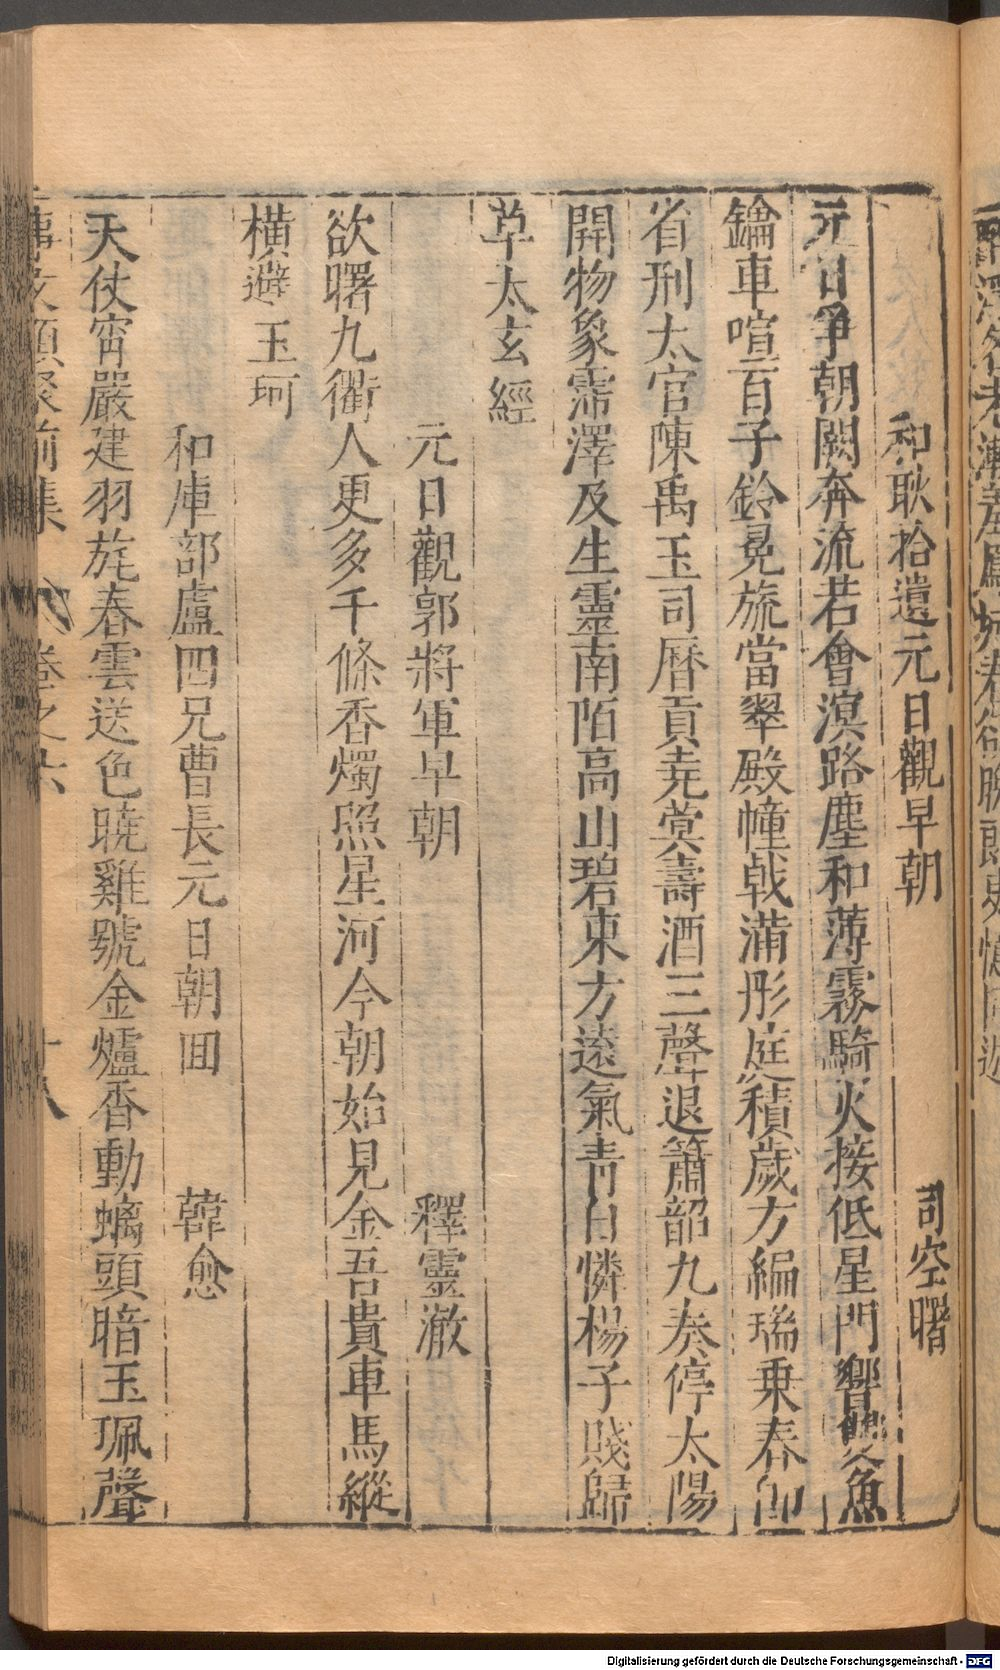 和耿拾遺元日觀早朝 司空曙
元日爭朝闕奔流若會溟路塵和薄霧騎火接低星門響雙魚
鑰車喧百子鈴冕旒當翠殿幢戟滿彤庭積歲方編瑞乗春卽
省刑太官陳禹玉司曆貢堯蓂壽酒三聲退簫韶九奏停太陽
開物象霈澤及生靈南陌高山碧東方遠氣青自憐楊子賤歸
草太玄經
元日觀郭將軍早朝 釋靈澈
欲曙九衢人更多千條香燭照星河今朝始見金吾貴車馬縱
橫避玉珂
和庫部盧四兄曹長元日朝囬 韓愈
天仗宵嚴建羽旄春雲送色曉雞號金爐香動螭頭暗玉珮聲
事文類聚前集 卷之六 十八
Digitalisierung gefördert durch die Deutsche Forschungsgemeinschaft - DFG